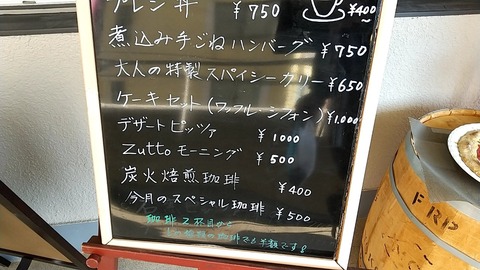 丼 ¥750
¥400~
煮込み手ごねハンバーグ ¥750
大人の特製スパイシーカリー ¥650
ケーキセット(ワッフル-シフォン) ¥1,000
デザートピッツァ ¥1000
Zuttoモーニング ¥500
炭火焙煎珈琲 ¥400
今月のスペシャル珈琲 ¥500
珈琲2杯目から
珈琲でも半額です!
FRP